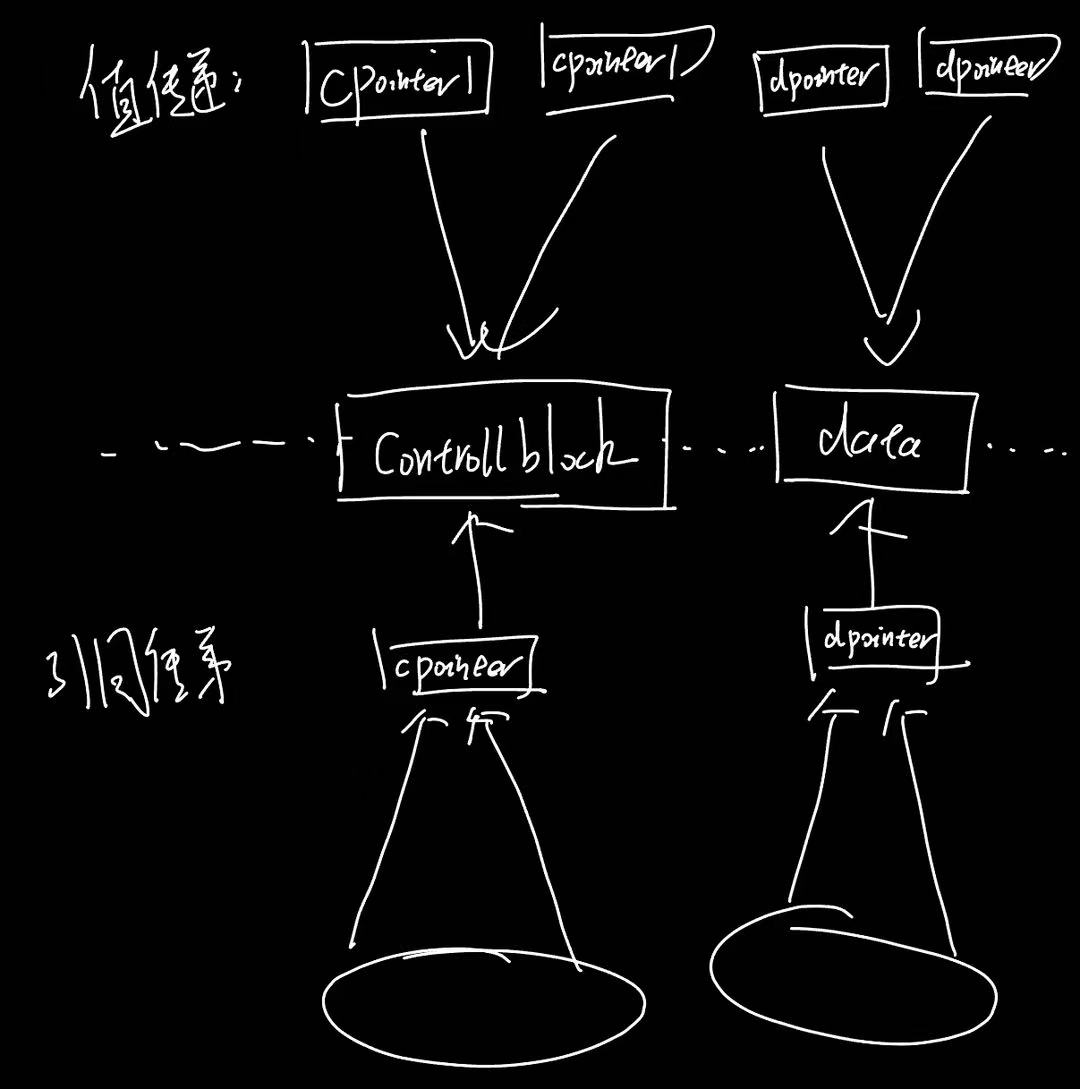 值传递: cpointer1 cpointer1 dpointer dpointer
Controllblock data
dpointer
引用传递 cpointer